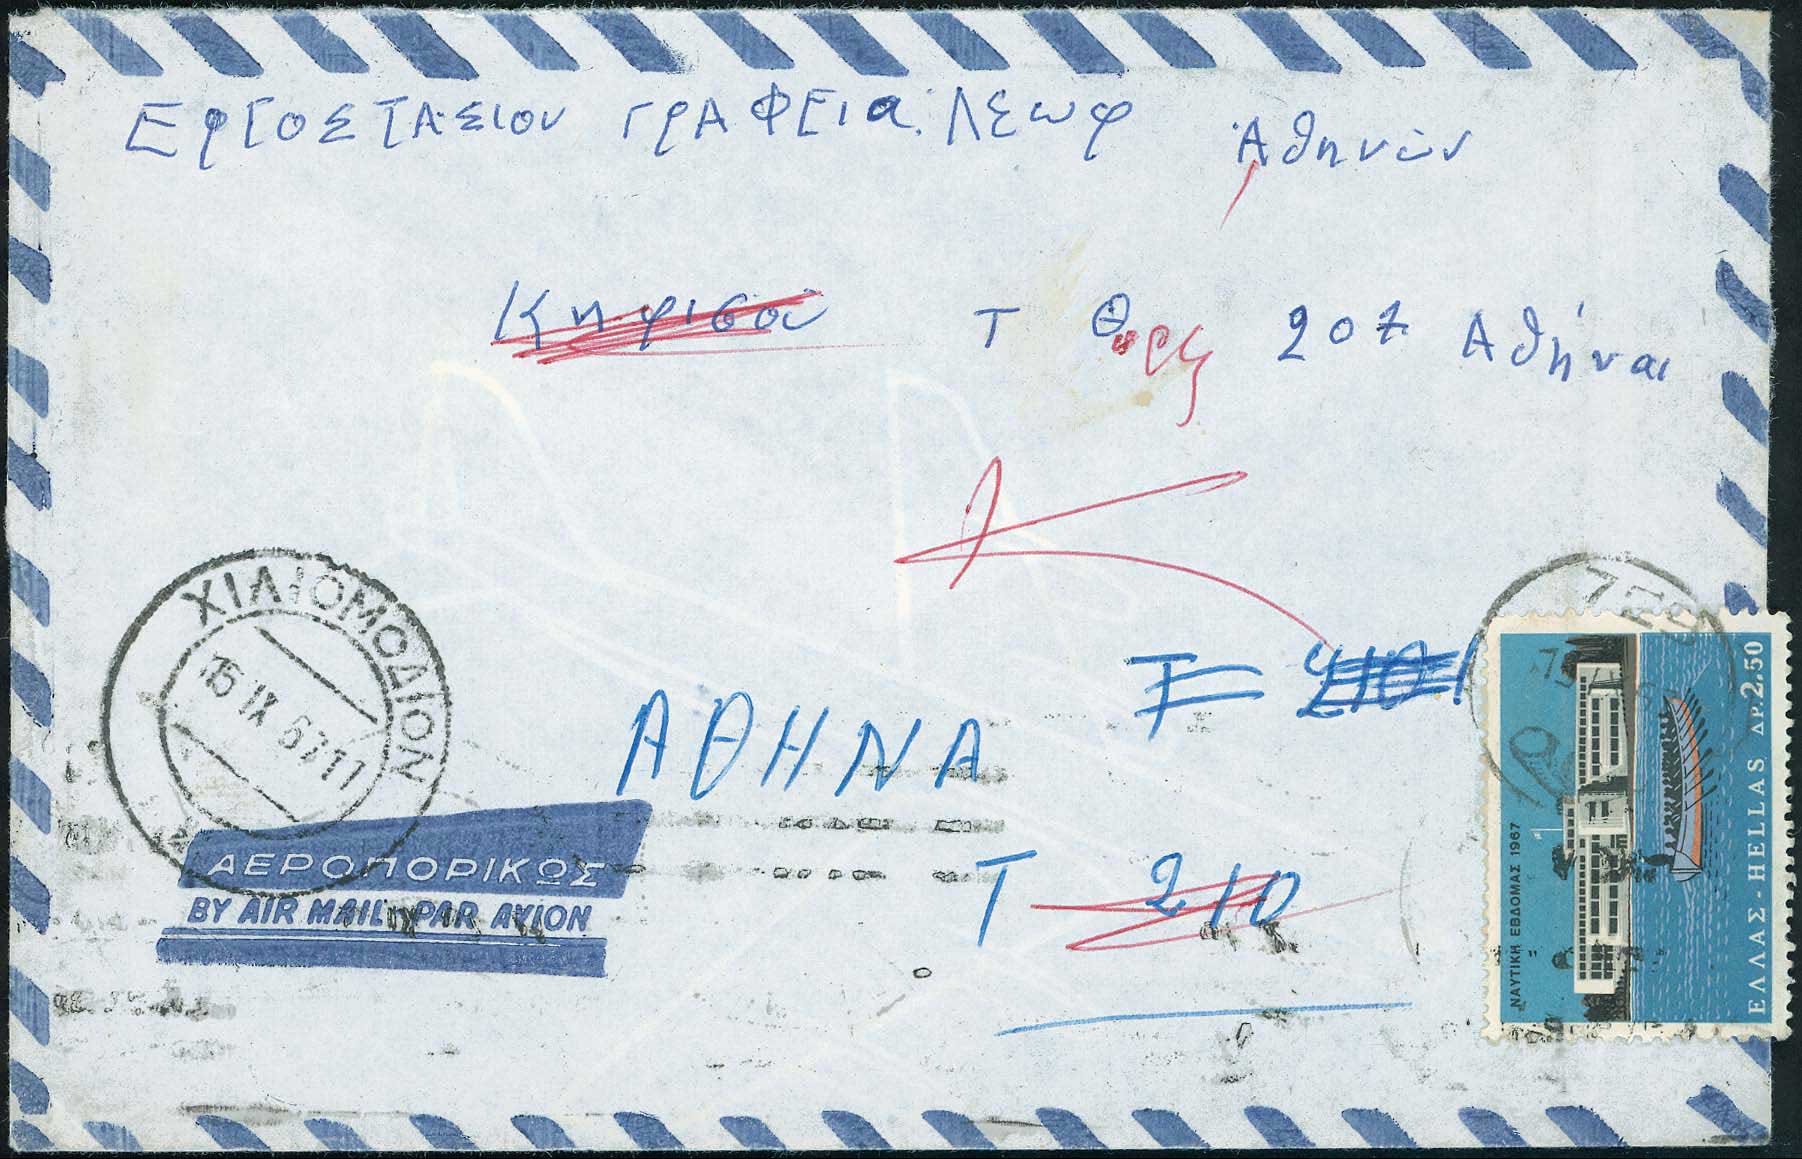 Εργοστασιου γραφεια. Λεωφ Αθηνών
Κηφισού Τ Θ 207 Αθήναι
ΧΙΛΙΟΜΟΔΙΟΝ
15 IX 67 11
ΑΘΗΝΑ
Τ 210
ΑΕΡΟΠΟΡΙΚΩΣ
BY AIR MAIL PAR AVION
ΝΑΥΤΙΚΗ ΕΒΔΟΜΑΣ 1967
ΕΛΛΑΣ - HELLAS ΔΡ. 2.50